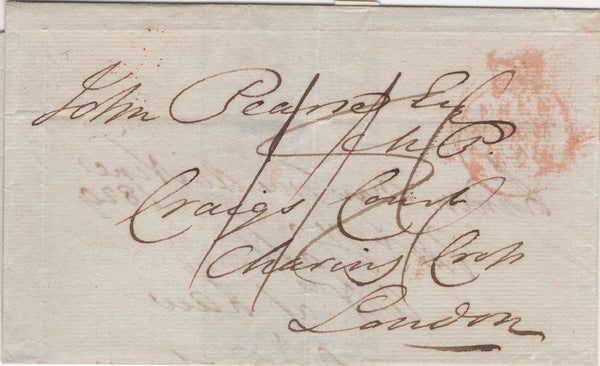 John Pearse Esq
M.P.
Craigs Court
Charing Cross
London